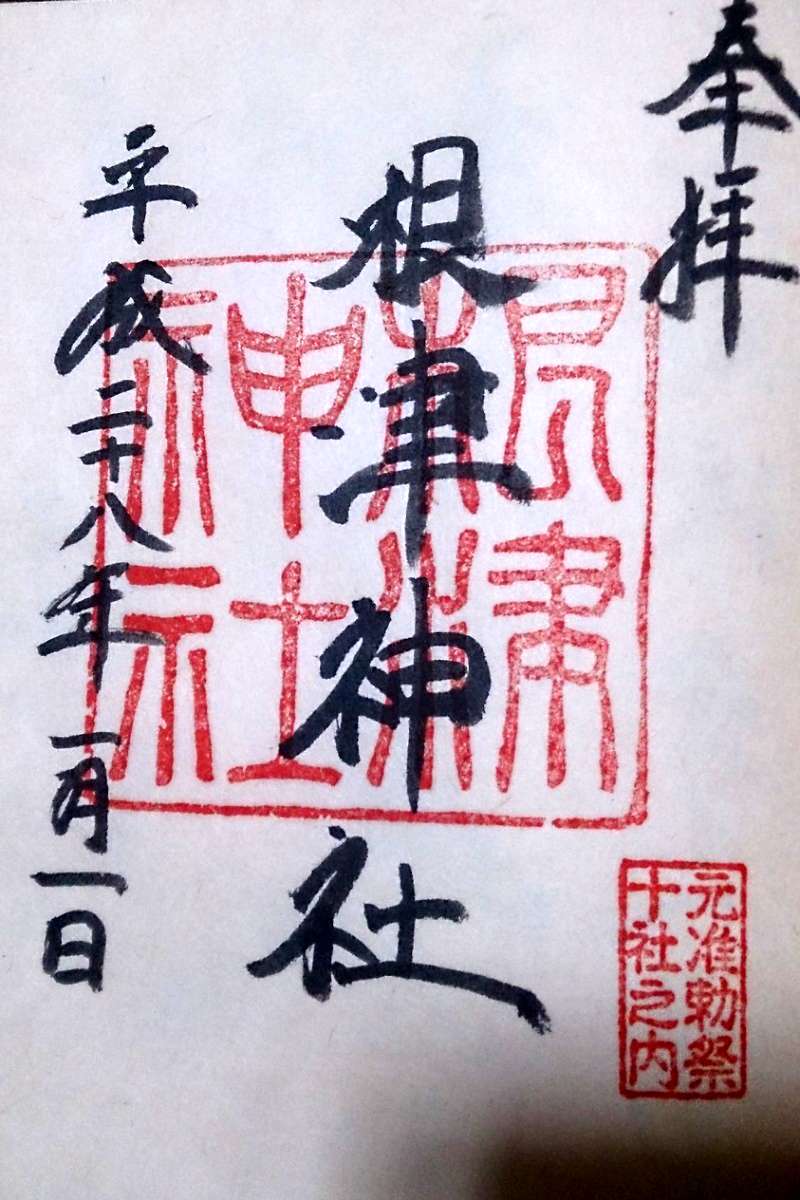 奉拝
元准勅祭
十社之内
根津神社
根津
神社
平成二十八年一月一日